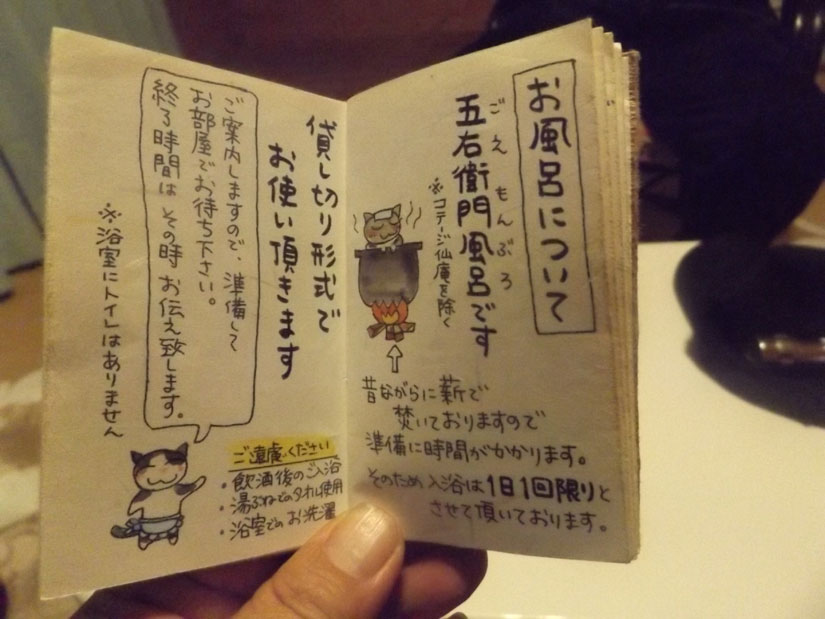 お風呂について
ごえもんぶろ
五右衛門風呂です
※コテージ仙庵を除く
昔ながらに薪で
焚いておりますので
準備に時間がかかります。
そのため入浴は1日1回限りと
させて頂いております。
貸し切り形式で
お使い頂きます
ご案内しますので、準備して
お部屋でお待ち下さい。
終了時間は その時 お伝え致します。
※浴室にトイレはありません
ご遠慮ください
・飲酒後のご入浴
・湯ぶねでのタオル使用
・浴室でのお洗濯